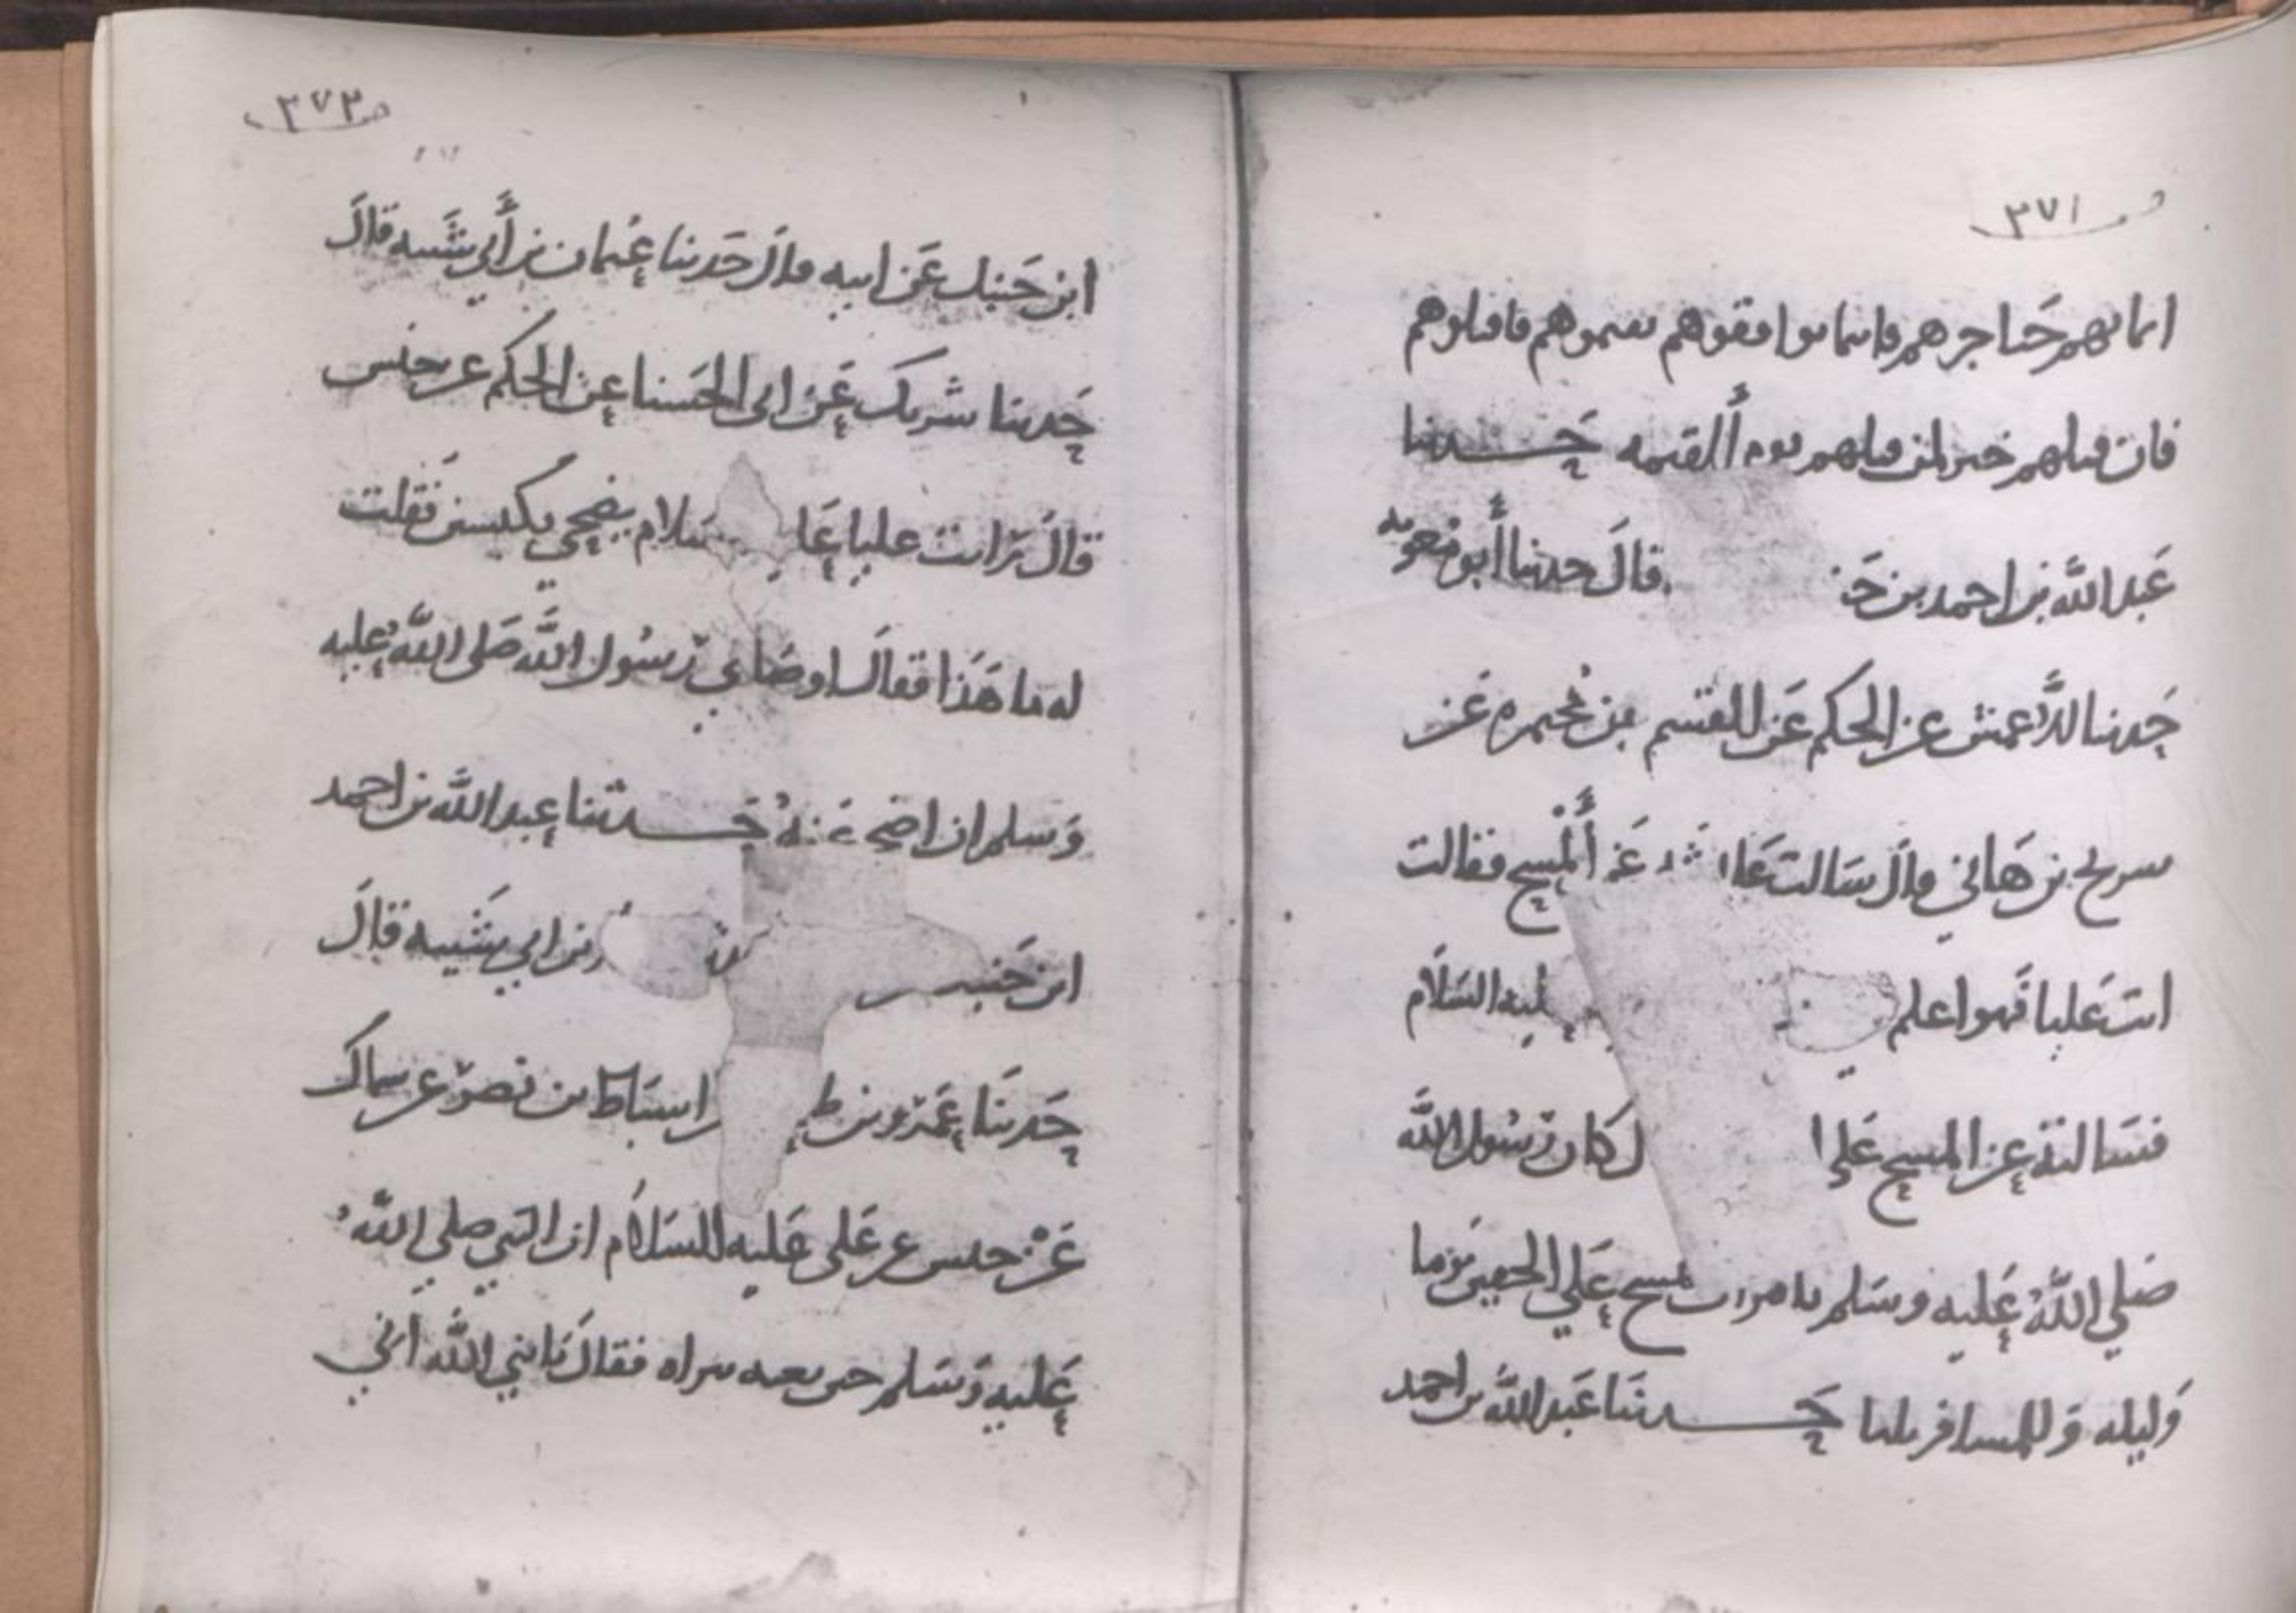 ص ٣٧١
ايمانهم حناجرهم فاينما لقيتموهم فاقتلوهم
فان قتلهم خير لمن قتلهم يوم القيمه حدثنا
عبد الله بن احمد بن حن قال حدثنا أبو معويه
حدثنا الأعمش عن الحكم عن القسم بن مخيمره عن
سريح بن هاني قال سالت عا ئشه عن ألمسح فقالت
ائت عليا فهو اعلم عليه السلام
فسالته عن المسح علي ا ل كان رسول الله
صلي الله عليه وسلم يامرنا نمسح علي الخفين يوما
وليله وللمسافر ثلثا حدثنا عبد الله بن احمد
ص ٣٧٢
ابن حنبل عن ابيه قال حدثنا عثمان بن أبي شيبه قال
حدثنا شريك عن ابي الحسنا عن الحكم عن حنش
قال رايت عليا عليه سلام يضحي بكبشين فقلت
له ما هذا فقال اوصاني رسول الله صلي الله عليه
وسلم ان اضحي عنه حدثنا عبد الله بن احمد
ابن حنبل بن ابي شيبه قال
حدثنا عمرو بن ط اسباط بن نصر عن سماك
عن حنش عن علي عليه السلام ان النبي صلي الله
عليه وسلم حين بعثه ببراه فقال يا نبي الله اني